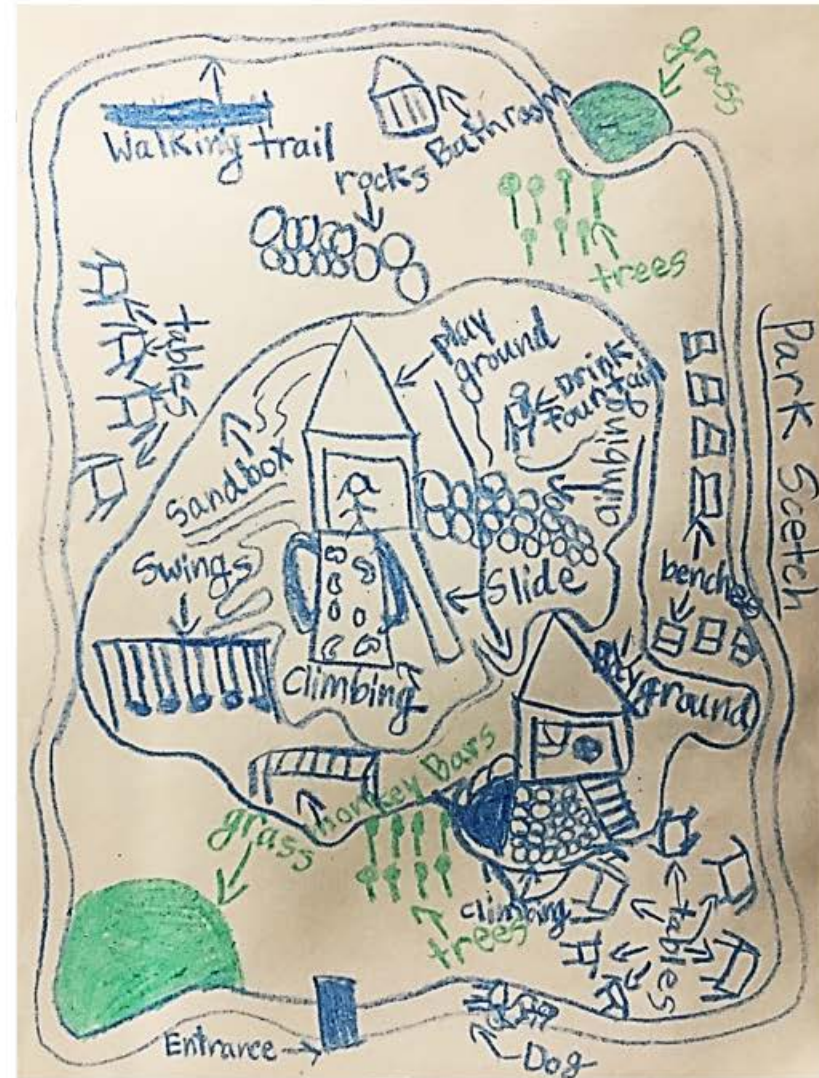 grass
Walking trail
Bathroom
rocks
trees
tables
play
ground
Drink
Fountain
climbing
Sandbox
Park Scetch
Swings
Slide
benches
climbing
Playground
monkey Bars
grass
trees
climbing
tables
Entrance
Dog